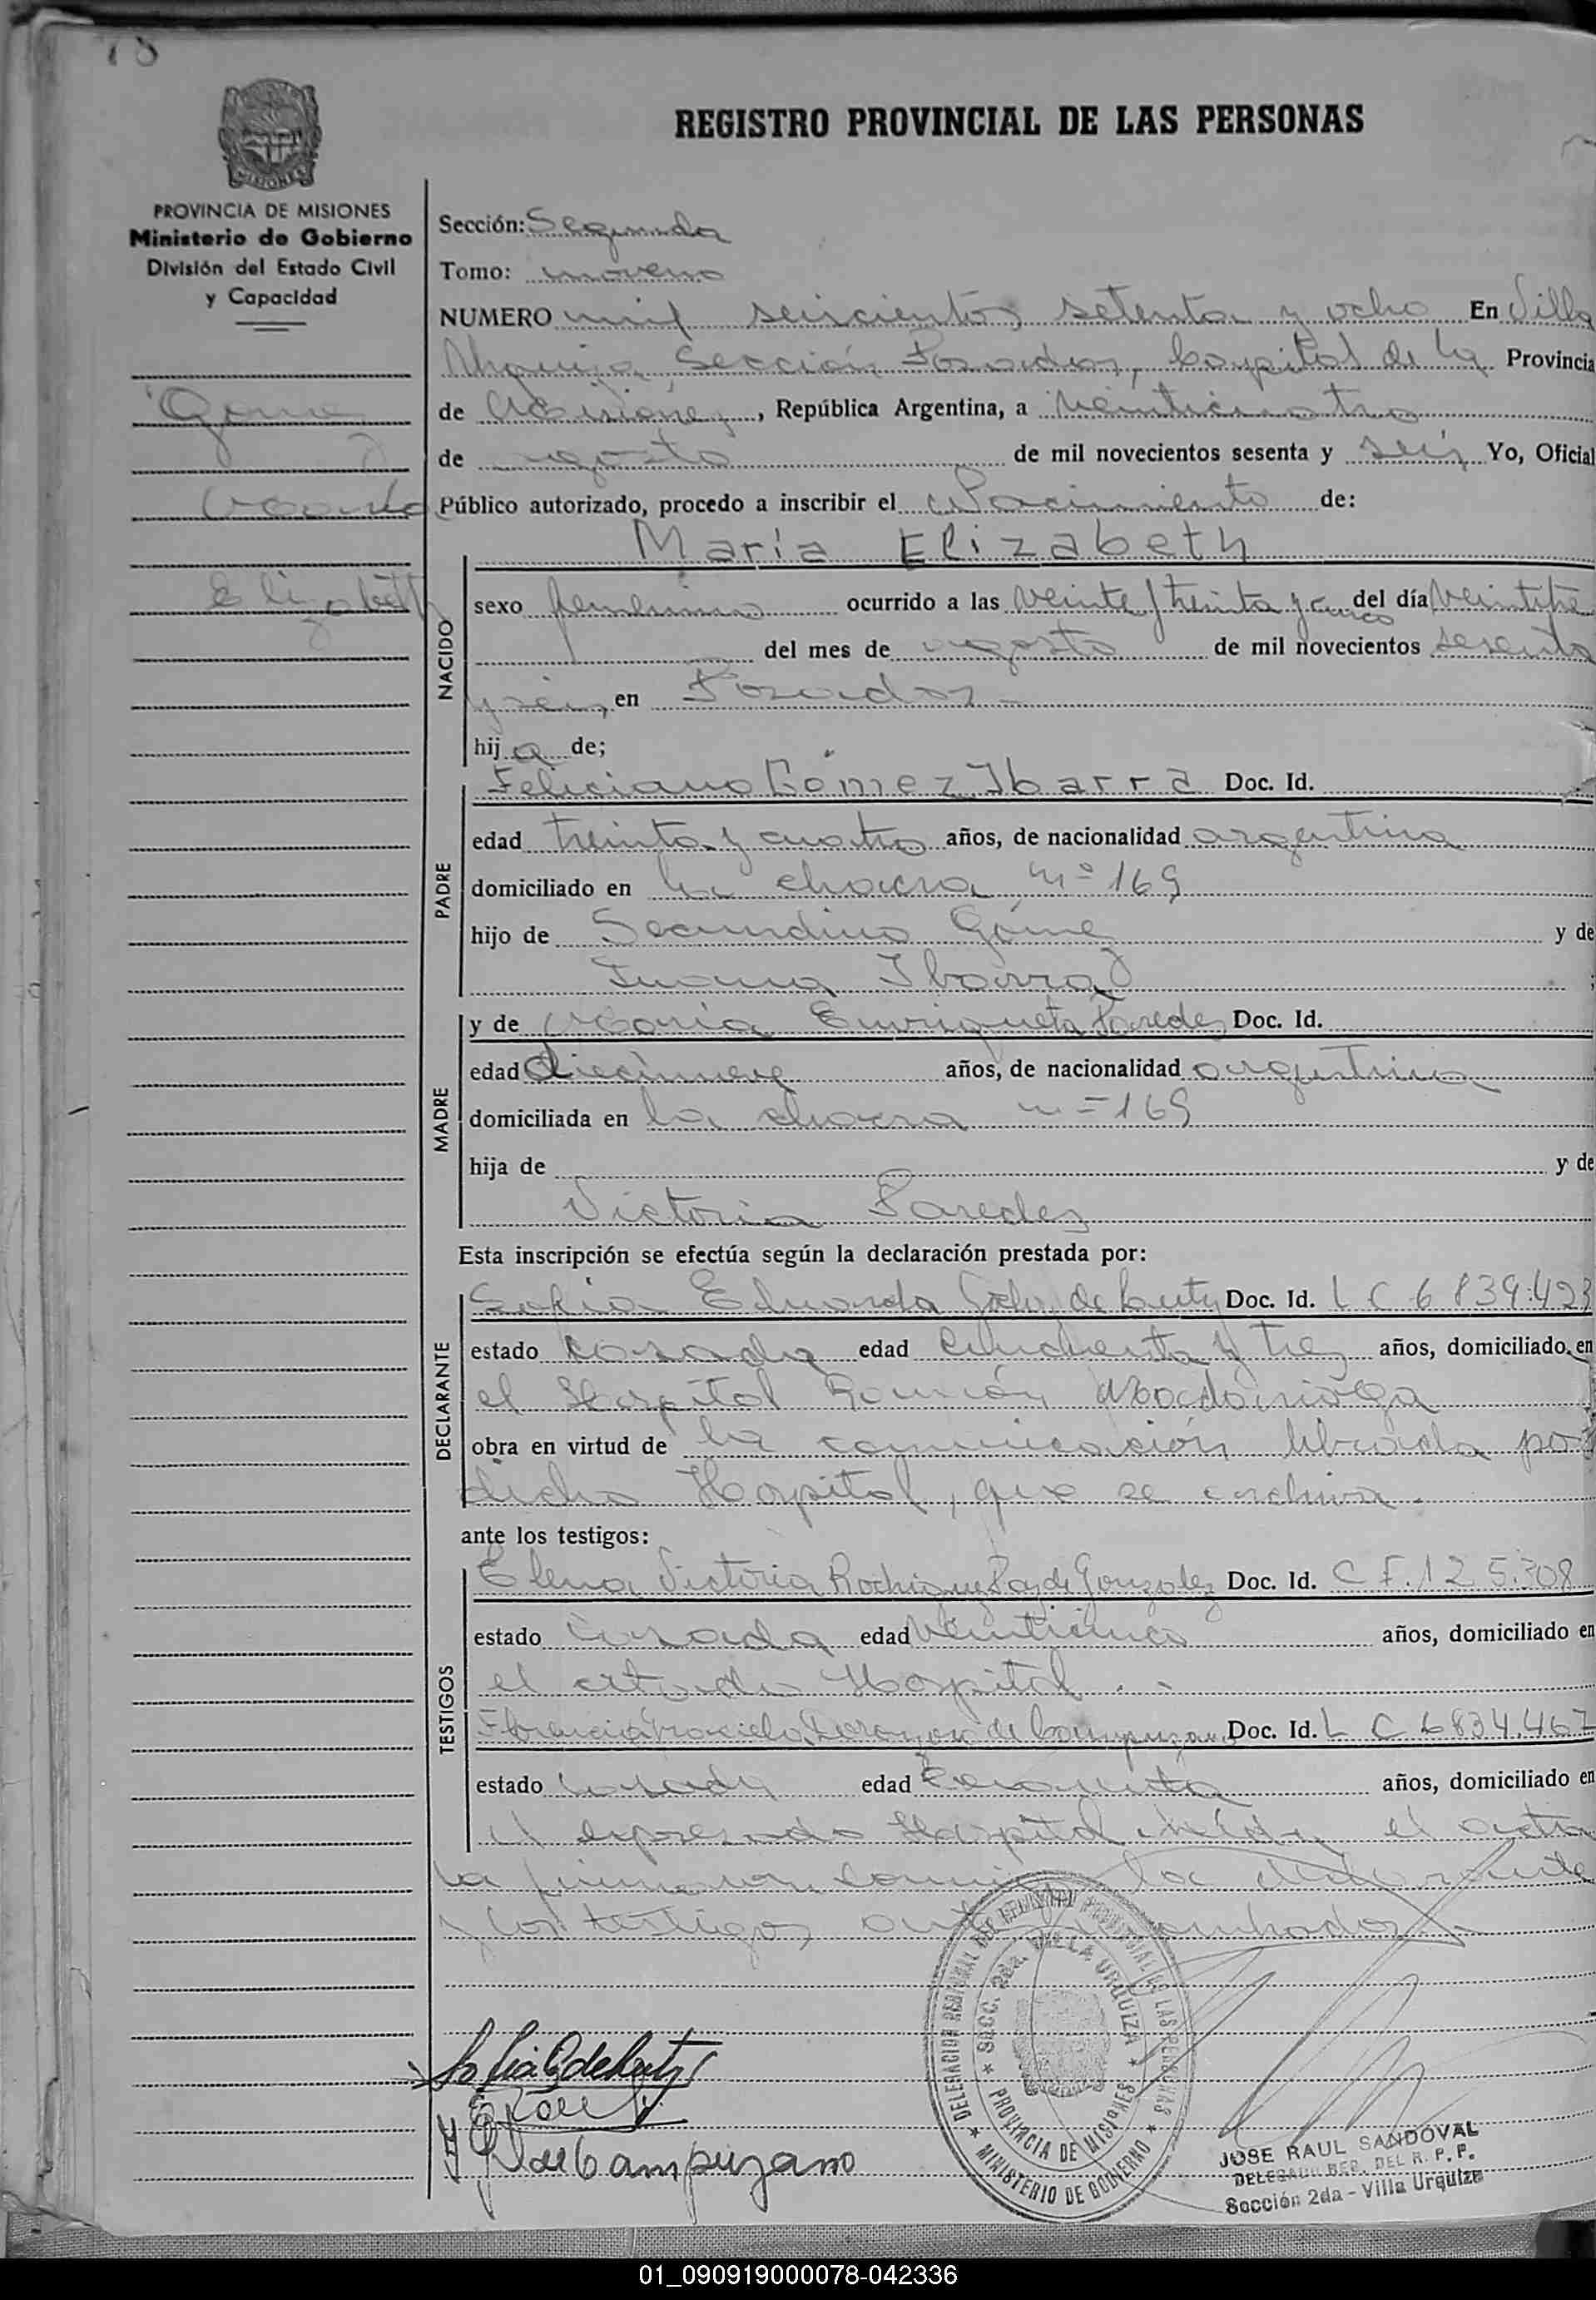 REGISTRO PROVINCIAL DE LAS PERSONAS
MISIONES
PROVINCIA DE MISIONES
Ministerio de Gobierno
División del Estado Civil
y Capacidad
Gomez
María
Elizabeth
Sección: Segunda
Tomo: noveno
NUMERO mil seiscientos setenta y ocho En Villa
Urquiza, Sección Posadas, Capital de la Provincia
de Misiones, República Argentina, a veinticuatro
de agosto de mil novecientos sesenta y seis Yo, Oficial
Público autorizado, procedo a inscribir el Nacimiento de:
María Elizabeth
NACIDO
sexo femenino ocurrido a las veinte y treinta y cinco del día veintitre
del mes de agosto de mil novecientos sesenta
y seis, en Posadas
hija de;
PADRE
Feliciano Gómez Ibarra Doc. Id.
edad treinta y cuatro años, de nacionalidad argentina
domiciliado en la chacra nº 169
hijo de Secundino Gómez y de
Juana Ibarra ;
MADRE
y de María Enriqueta Paredes Doc. Id.
edad diecinueve años, de nacionalidad argentina
domiciliada en la chacra nº 169
hija de y de
Victoria Paredes
Esta inscripción se efectúa según la declaración prestada por:
DECLARANTE
Sofía Eduarda de Doc. Id. L C 6839.428
estado casada edad cincuenta y tres años, domiciliado en
el Hospital Ramón Madariaga
obra en virtud de la comunicación librada por
dicho Hospital, que se archiva.
ante los testigos:
TESTIGOS
Elena Victoria Rodriguez de Gonzalez Doc. Id. C F. 125.308
estado casada edad veinticinco años, domiciliado en
el citado Hospital
Florencia Graciela de Campuzano Doc. Id. L C 6834.467
estado casada edad cuarenta años, domiciliado en
el expresado Hospital. Leída el acta
la firmaron conmigo la declarante
y los testigos
DELEGACION REGIONAL DEL REGISTRO PROVINCIAL DE LAS PERSONAS
SECC. 2da. VILLA URQUIZA
PROVINCIA DE MISIONES
MINISTERIO DE GOBIERNO
Campuzano
JOSE RAUL SANDOVAL
DELEGADO REG. DEL R. P. P.
Sección 2da - Villa Urquiza
01_090919000078-042336